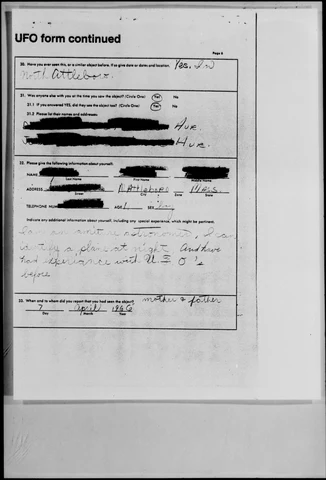 UFO form continued
Page 4
20. Have you ever seen this, or a similar object before. If so give date or dates and location. Yes. In
North Attleboro.
21. Was anyone else with you at the time you saw the object? (Circle One) Yes No
21.1 If you answered YES, did they see the object too? (Circle One) Yes No
21.2 Please list their names and addresses:
Ave.
Ave.
22. Please give the following information about yourself:
NAME
Last Name First Name Middle Name
ADDRESS N. Attleboro Mass.
Street City State
TELEPHONE AGE SEX
Indicate any additional information about yourself, including any special experience, which might be pertinent.
I am an astronomist, I can
a plane at night And have
had experience with U.F.O's
before.
23. When and to whom did you report that you had seen the object? mother & father
7 April 1966
Day Month Year